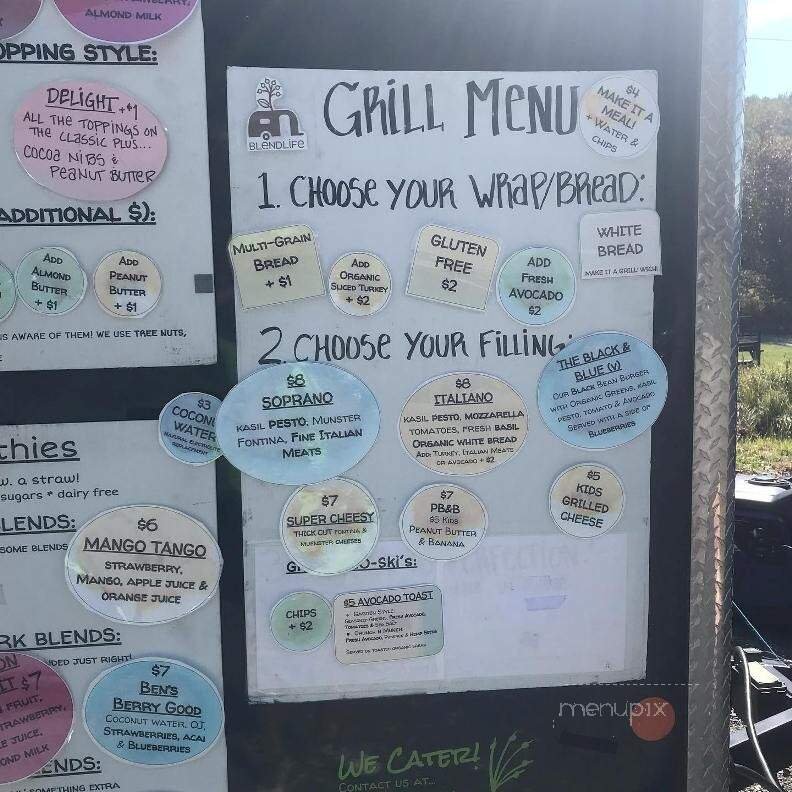 ALMOND MILK
OPPING STYLE:
DELIGHT +$1
ALL THE TOPPINGS ON
THE CLASSIC PLUS...
COCOA NIBS &
PEANUT BUTTER
ADDITIONAL $):
ADD
ALMOND
BUTTER
+ $1
ADD
PEANUT
BUTTER
+ $1
IS AWARE OF THEM! WE USE TREE NUTS,
$3
COCONU
WATER
thies
w. a straw!
sugars * dairy free
LENDS:
SOME BLENDS
$6
MANGO TANGO
STRAWBERRY,
MANGO, APPLE JUICE &
ORANGE JUICE
RK BLENDS:
DED JUST RIGHT!
$7
FRUIT,
TRAWBERRY,
LE JUICE,
OND MILK
$7
BEN'S
BERRY GOOD
COCONUT WATER, OJ,
STRAWBERRIES, ACAI
& BLUEBERRIES
ENDS:
SOMETHING EXTRA
BLENDLIFE
GRILL MENU
$4
MAKE IT A
MEAL!
+ WATER &
CHIPS
1. CHOOSE YOUR WRAP/BREAD:
MULTI-GRAIN
BREAD
+ $1
ADD
ORGANIC
SLICED TURKEY
+ $2
GLUTEN
FREE
$2
ADD
FRESH
AVOCADO
$2
WHITE
BREAD
2. CHOOSE YOUR FILLING:
$8
SOPRANO
KASIL PESTO, MUNSTER
FONTINA, FINE ITALIAN
MEATS
$8
ITALIANO
KASIL PESTO, MOZZARELLA
TOMATOES, FRESH BASIL
ORGANIC WHITE BREAD
ADD: TURKEY, ITALIAN MEATS
OR AVOCADO + $2
THE BLACK &
BLUE (V)
OUR BLACK BEAN BURGER
WITH ORGANIC GREENS, KASIL
PESTO, TOMATO & AVOCADO
SERVED WITH A SIDE OF
BLUEBERRIES
$7
SUPER CHEESY
THICK CUT FONTINA &
MUENSTER CHEESES
$7
PB&B
$5 KIDS
PEANUT BUTTER
& BANANA
$5
KIDS
GRILLED
CHEESE
O-SKI'S:
CHIPS
+ $2
$5 AVOCADO TOAST
WE CATER!
CONTACT US AT...
menupix